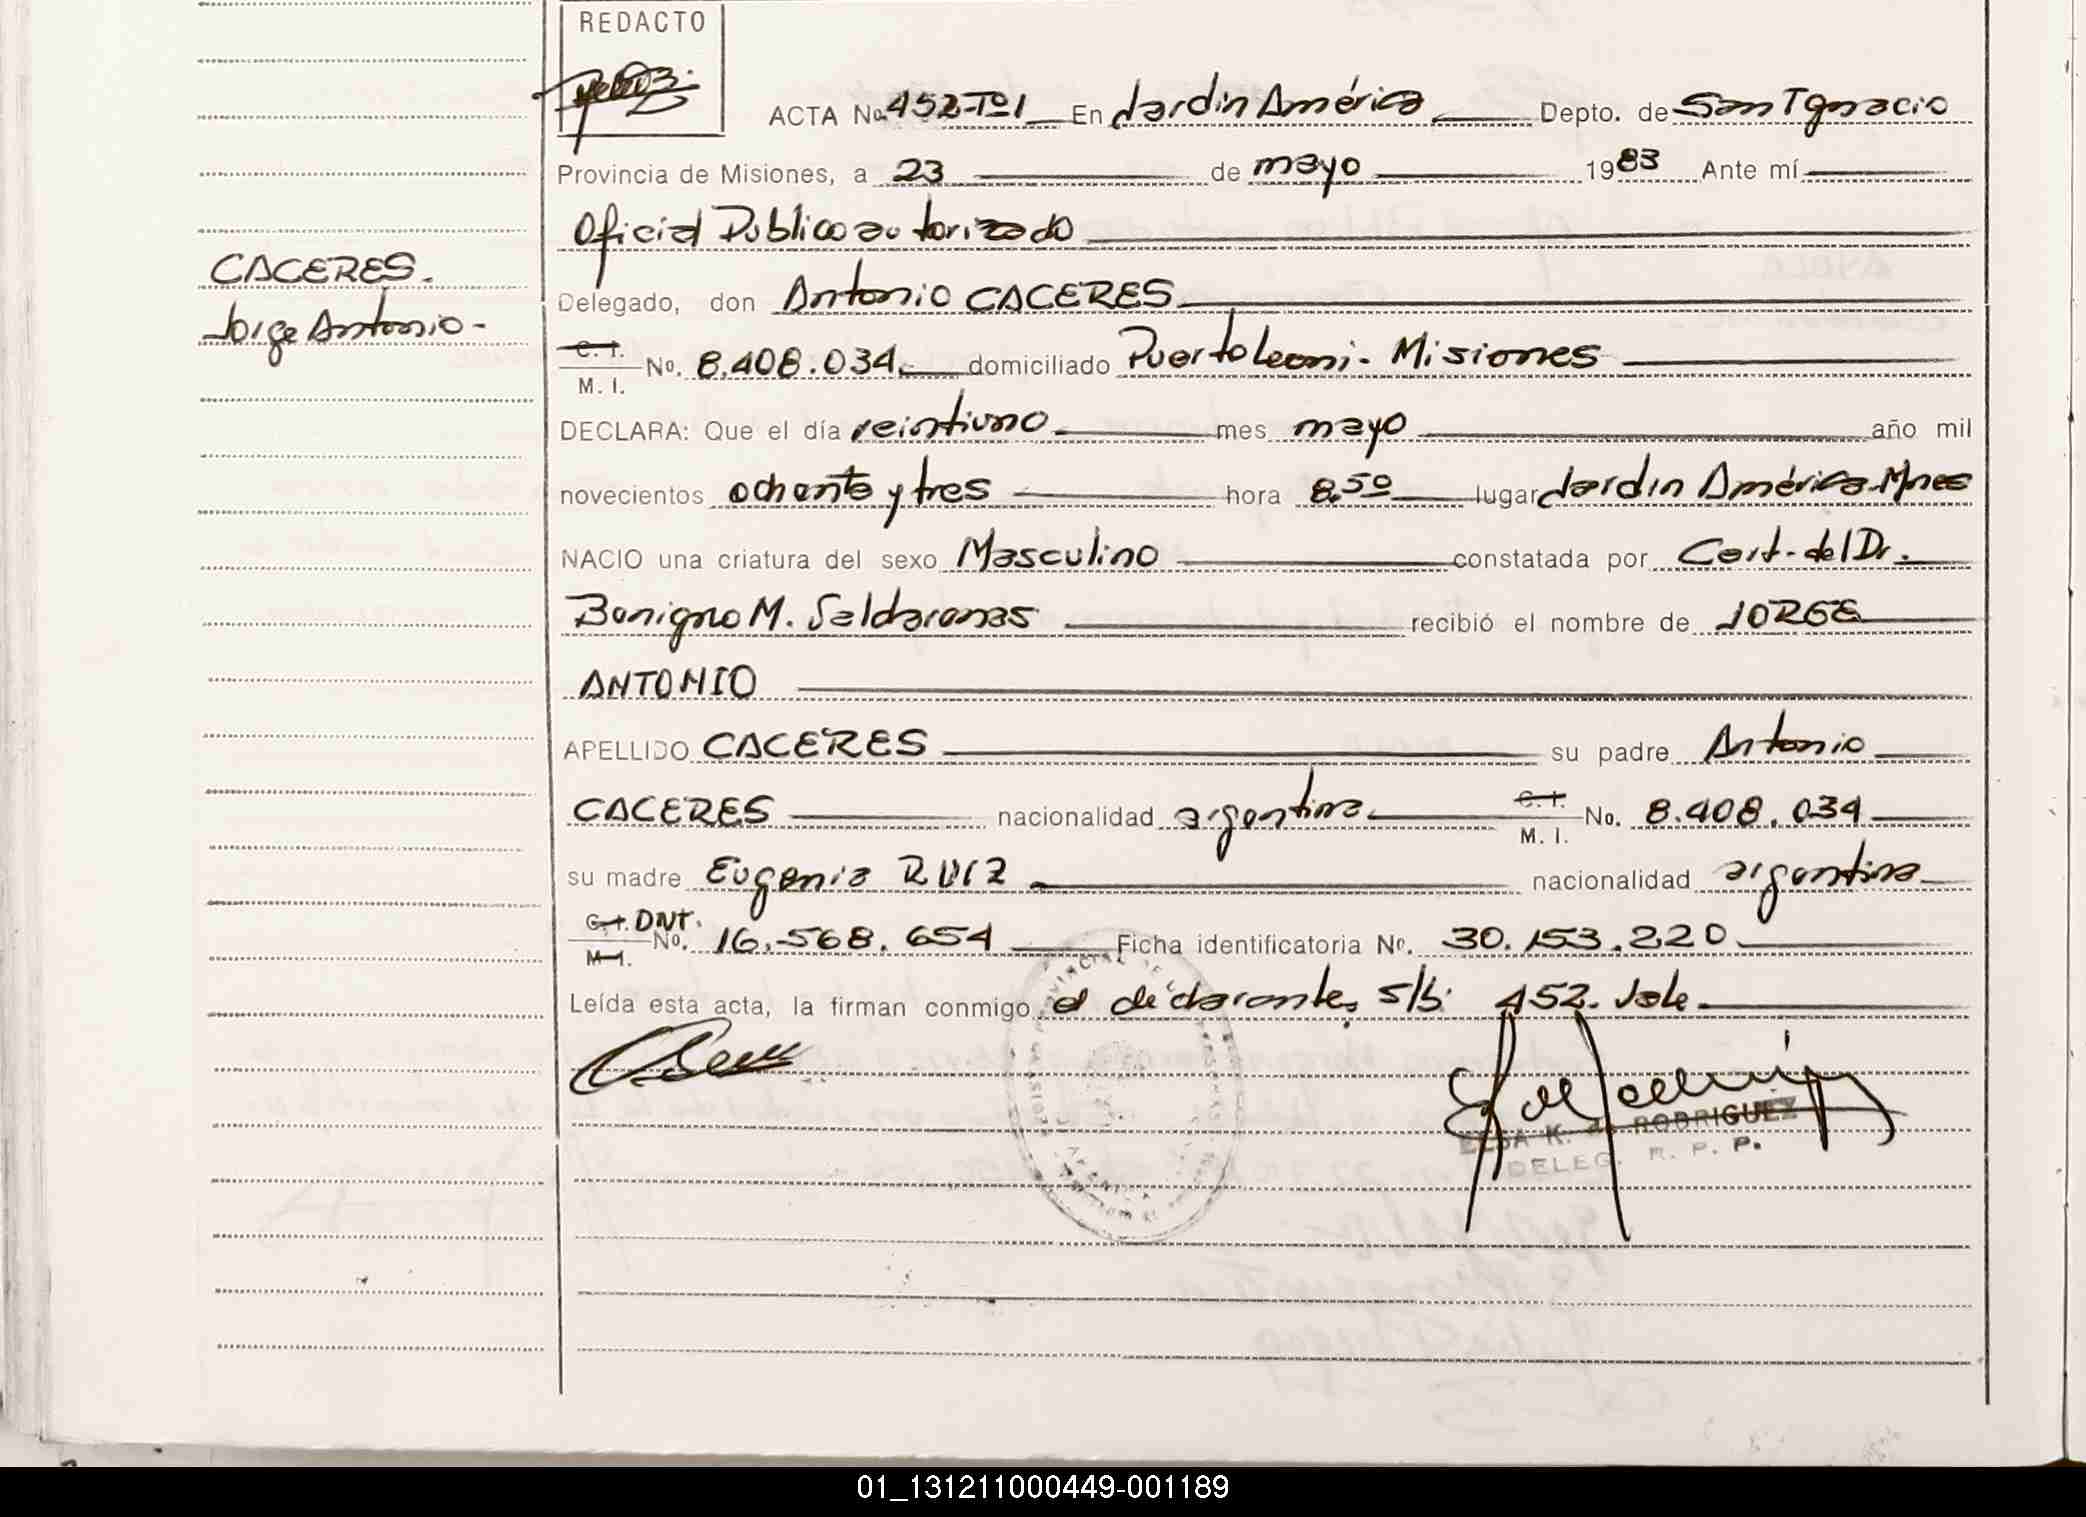 REDACTO
ACTA No. 452-Tº1 En Jardín América Depto. de San Ignacio
Provincia de Misiones, a 23 de mayo 1983 Ante mí
Oficial Público autorizado
CACERES.
Jorge Antonio-
Delegado, don Antonio CACERES
C. I.
M. I. No. 8.408.034. domiciliado Puerto Leoni - Misiones
DECLARA: Que el día veintiuno mes mayo año mil
novecientos ochenta y tres hora 8,50 lugar Jardín América-Mnes
NACIO una criatura del sexo Masculino constatada por Cert. del Dr.
Benigno M. recibió el nombre de JORGE
ANTONIO
APELLIDO CACERES su padre Antonio
CACERES nacionalidad argentina C. I. M. I. No. 8.408.034
su madre Eugenia RUIZ nacionalidad argentina
C. I. DNI.
M. I. No. 16.568.654 Ficha identificatoria No. 30.153.220
Leída esta acta, la firman conmigo el declarante, s/b: 452. Vale.
ELSA K. de RODRIGUEZ
DELEG. R. P. P.
01_131211000449-001189